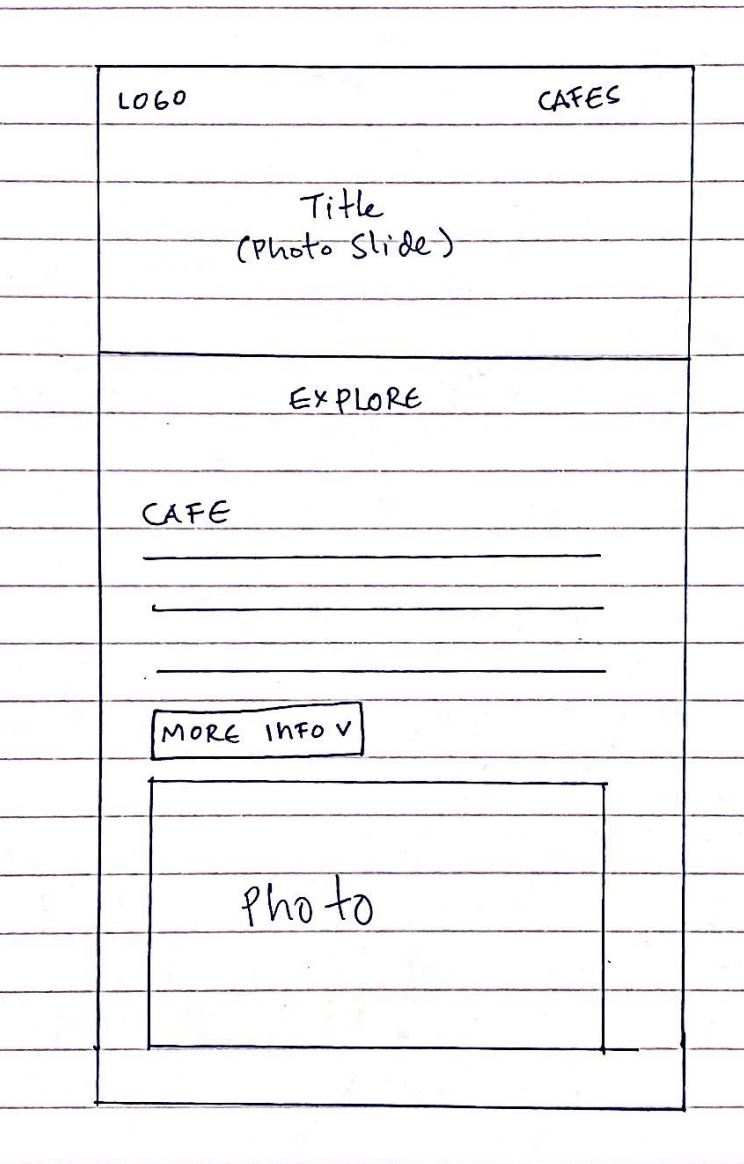 LOGO
CAFES
Title
(Photo Slide)
EXPLORE
CAFE
MORE INFO V
Photo